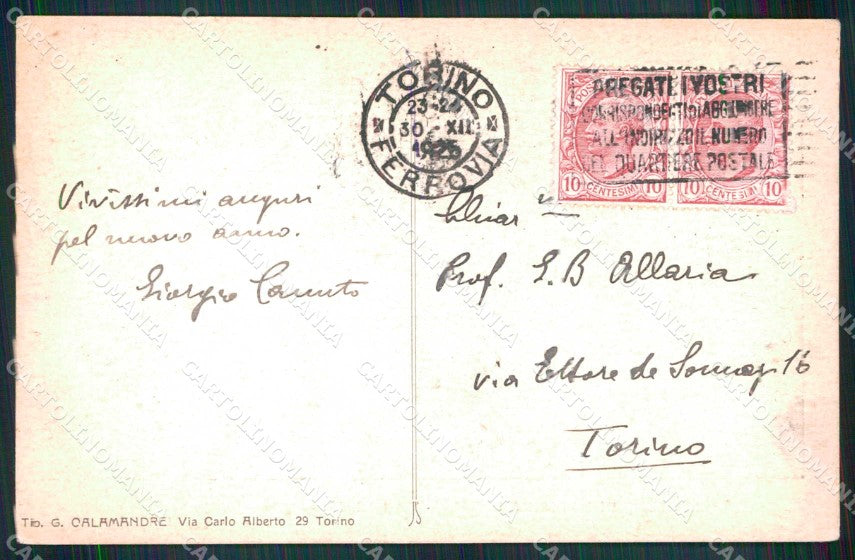 TORINO
23-24
30 XII
1925
FERROVIA
PREGATE I VOSTRI
CORRISPONDENTI DI AGGIUNGERE
ALL'INDIRIZZO IL NUMERO
DEL QUARTIERE POSTALE
10 CENTESIMI 10
10 CENTESIMI 10
Vivissimi auguri
pel nuovo anno.
Giorgio
Chiar mo
Prof. G. B Allaria
via Ettore de Sonnaz 16
Torino
Tip. G. CALAMANDRE Via Carlo Alberto 29 Torino
CARTOLINOMANIA